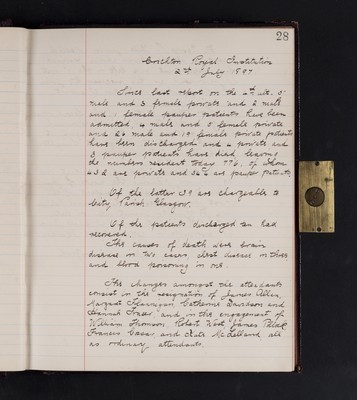 28
Crichton Royal Institution
2nd July 1897
Since last report on the 4th ult. 5
male and 3 female private and 2 male
and 1 female pauper patients have been
admitted, 4 male and 5 female private
and 26 male and 19 female private patients
have been discharged and 4 private and
3 pauper patients have died leaving
the numbers resident today 776, of whom
432 are private and 344 are pauper patients.
Of the latter 39 are chargeable to
City Parish, Glasgow.
Of the patients discharged ten had
recovered.
The causes of death were brain
disease in two cases, chest disease in three
and blood poisoning in one.
The changes amongst the attendants
consist in the resignation of James Allen,
Margaret Flannigan Catherine Davidson and
Hannah Fraser, and in the engagement of
William Thomson, Robert West James
Francis and Kate McLelland all
as ordinary attendants.